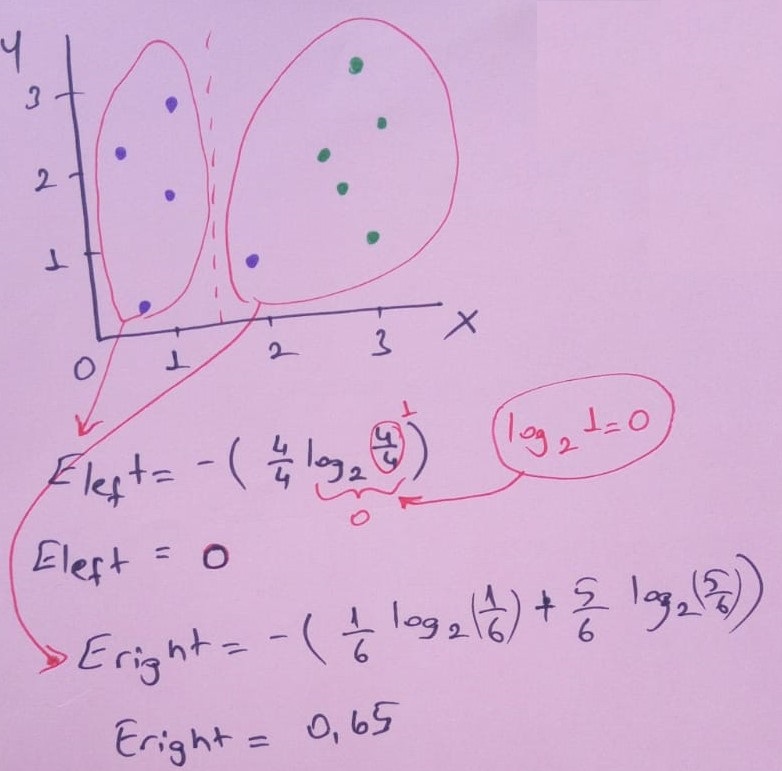 Y
3
2
1
0
1
2
3
X
Eleft = - ( 4/4 log₂ (4/4) ) 1
log₂ 1 = 0
0
Eleft = 0
Eright = - ( 1/6 log₂ (1/6) + 5/6 log₂ (5/6) )
Eright = 0,65